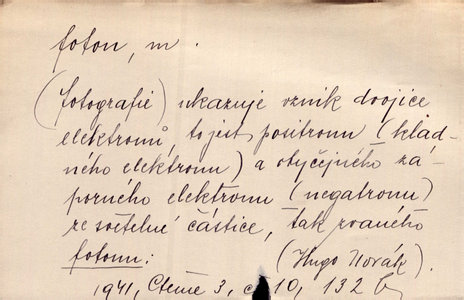 foton, m.
(fotografie) ukazuje vznik dvojice
elektronů, to jest positronu (klad-
ného elektronu) a obyčejného zá-
porného elektronu (negatronu)
ze světelné částice, tak zvaného
fotonu: (Hugo Novák).
1941, Čteme 3, č. 10, 132